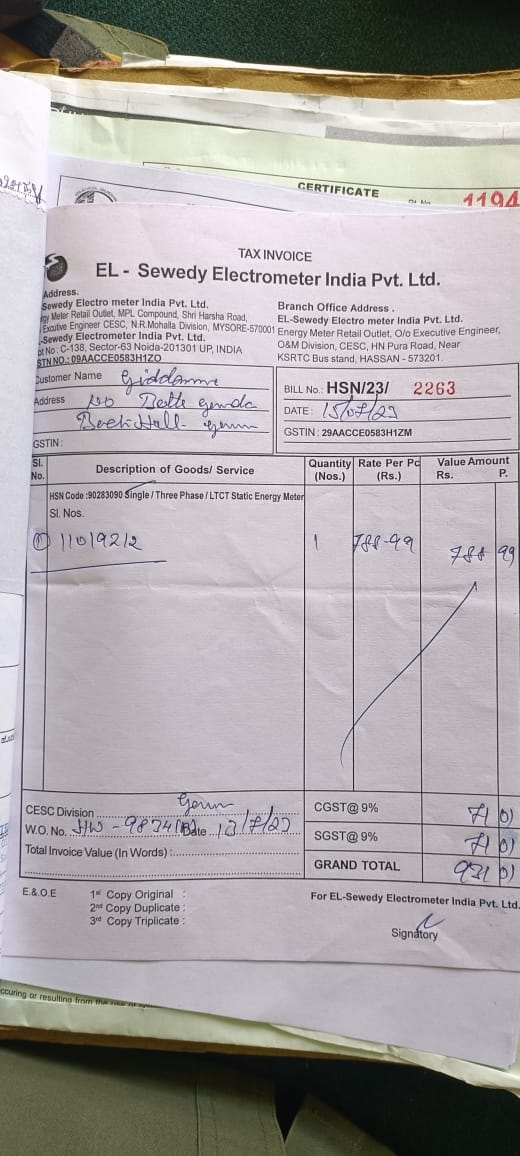 CERTIFICATE
1194
TAX INVOICE
EL - Sewedy Electrometer India Pvt. Ltd.
Address.
Sewedy Electro meter India Pvt. Ltd.
Meter Retail Outlet, MPL Compound, Shri Harsha Road,
Executive Engineer CESC, N.R.Mohalla Division, MYSORE-570001
Sewedy Electrometer India Pvt. Ltd.
No : C-138, Sector-63 Noida-201301 UP, INDIA
STN NO.: 09AACCE0583H1ZO
Branch Office Address .
EL-Sewedy Electro meter India Pvt. Ltd.
Energy Meter Retail Outlet, O/o Executive Engineer,
O&M Division, CESC, HN Pura Road, Near
KSRTC Bus stand, HASSAN - 573201.
Customer Name Giddamma
Address
GSTIN :
BILL No.: HSN/23/ 2263
DATE : 15/07/23
GSTIN : 29AACCE0583H1ZM
Sl. No. Description of Goods/ Service Quantity (Nos.) Rate Per Pc (Rs.) Value Amount Rs. P.
HSN Code :90283090 Single / Three Phase / LTCT Static Energy Meter
Sl. Nos.
① 11019212 1 788-99 788 99
CESC Division
W.O. No. Date 13/7/23
Total Invoice Value (In Words) :
CGST@ 9% 71 01
SGST@ 9% 71 01
GRAND TOTAL 931 01
E.& O.E
1st Copy Original :
2nd Copy Duplicate :
3rd Copy Triplicate :
For EL-Sewedy Electrometer India Pvt. Ltd.
Signatory
ccuring or resulting from the